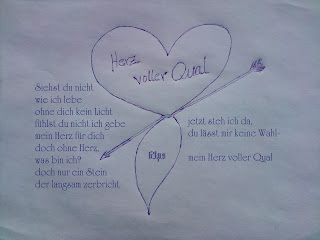 Herz
voller Qual
Siehst du nicht
wie ich lebe
ohne dich kein Licht
fühlst du nicht ich gebe
mein Herz für dich
doch ohne Herz,
was bin ich?
doch nur ein Stein
der langsam zerbricht.
jetzt steh ich da,
du lässt mir keine Wahl-
mein Herz voller Qual